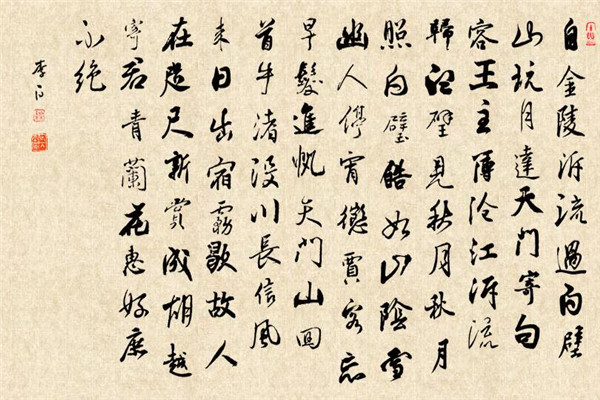 自金陵泝流過白壁
山玩月達天門寄句
容王主簿泠江泝流
歸白壁見秋月秋月
照白璧皓如山陰雪
幽人停宵懲賈客忘
早髮進帆天門山回
首牛渚没川長信風
來日出宿霧歇故人
在咫尺新賞成胡越
寄君青蘭花惠好庶
不絕
李白